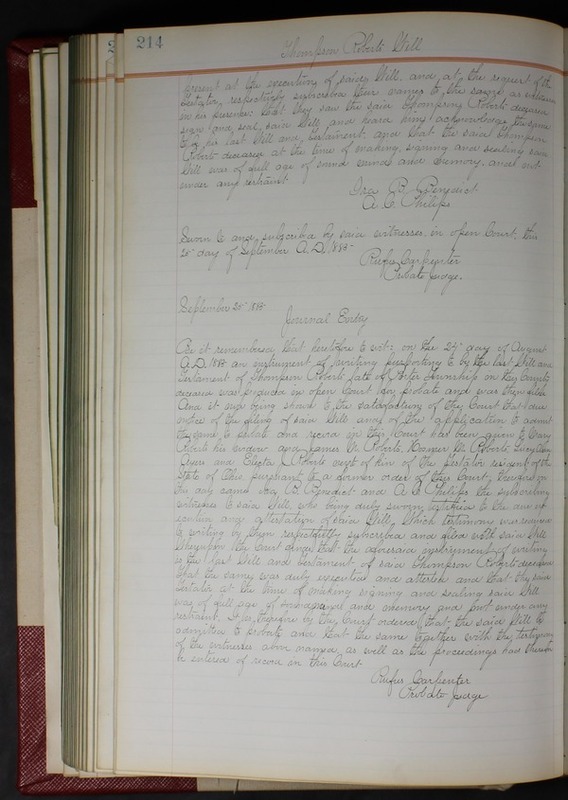 214
Thompson Roberts Will
present at the executing of said Will, and at the request of the
testator, respectively subscribed their names to the same as witnesses
in his presence. That they saw the said Thompson Roberts deceased
sign and seal said Will and heard him acknowledge the same
to be his last Will and Testament, and that the said Thompson
Roberts deceased at the time of making, signing and sealing said
Will was of full age of sound mind and memory, and not
under any restraint.
Ira B. Benedict
A. C. Philips
Sworn to and subscribed by said witnesses in open Court, this
25 day of September A.D. 1885
Rufus Carpenter
Probate Judge.
September 25 1885
Journal Entry
Be it remembered that heretofore to wit: on the day of August
A.D. 1885 an instrument of writing purporting to be the last Will and
Testament of Thompson Roberts late of Porter Township in this County
deceased was produced in open Court for probate and was then filed
And it now being shown to the satisfaction of the Court that due
notice of the filing of said Will and of the application to admit
the same to probate and record in this Court has been given to Mary
Roberts his widow and James W. Roberts, Homer W. Roberts, Lucy Ann
Ayers and Electa Roberts next of kin of the Testator resident of the
State of Ohio, pursuant to a former order of this Court, thereupon
this day came Ira B. Benedict and A. C. Philips the subscribing
witnesses to said Will, who being duly sworn testified to the due ex
ecution and attestation of said Will, which testimony was reduced
to writing by them respectfully subscribed and filed with said Will
Whereupon the Court finds that the aforesaid instrument of writing
is the last Will and testament of said Thompson Roberts deceased
that the same was duly executed and attested and that the said
testator at the time of making signing and sealing said Will
was of full age of sound mind and memory and not under any
restraint. It is therefore by the Court ordered that the said Will be
admitted to probate and that the same together with the testimony
of the witnesses above named as well as the proceedings had therein
be entered of record in this Court.
Rufus Carpenter
Probate Judge